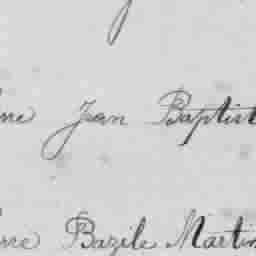 Jean Baptist
Bazile Martin